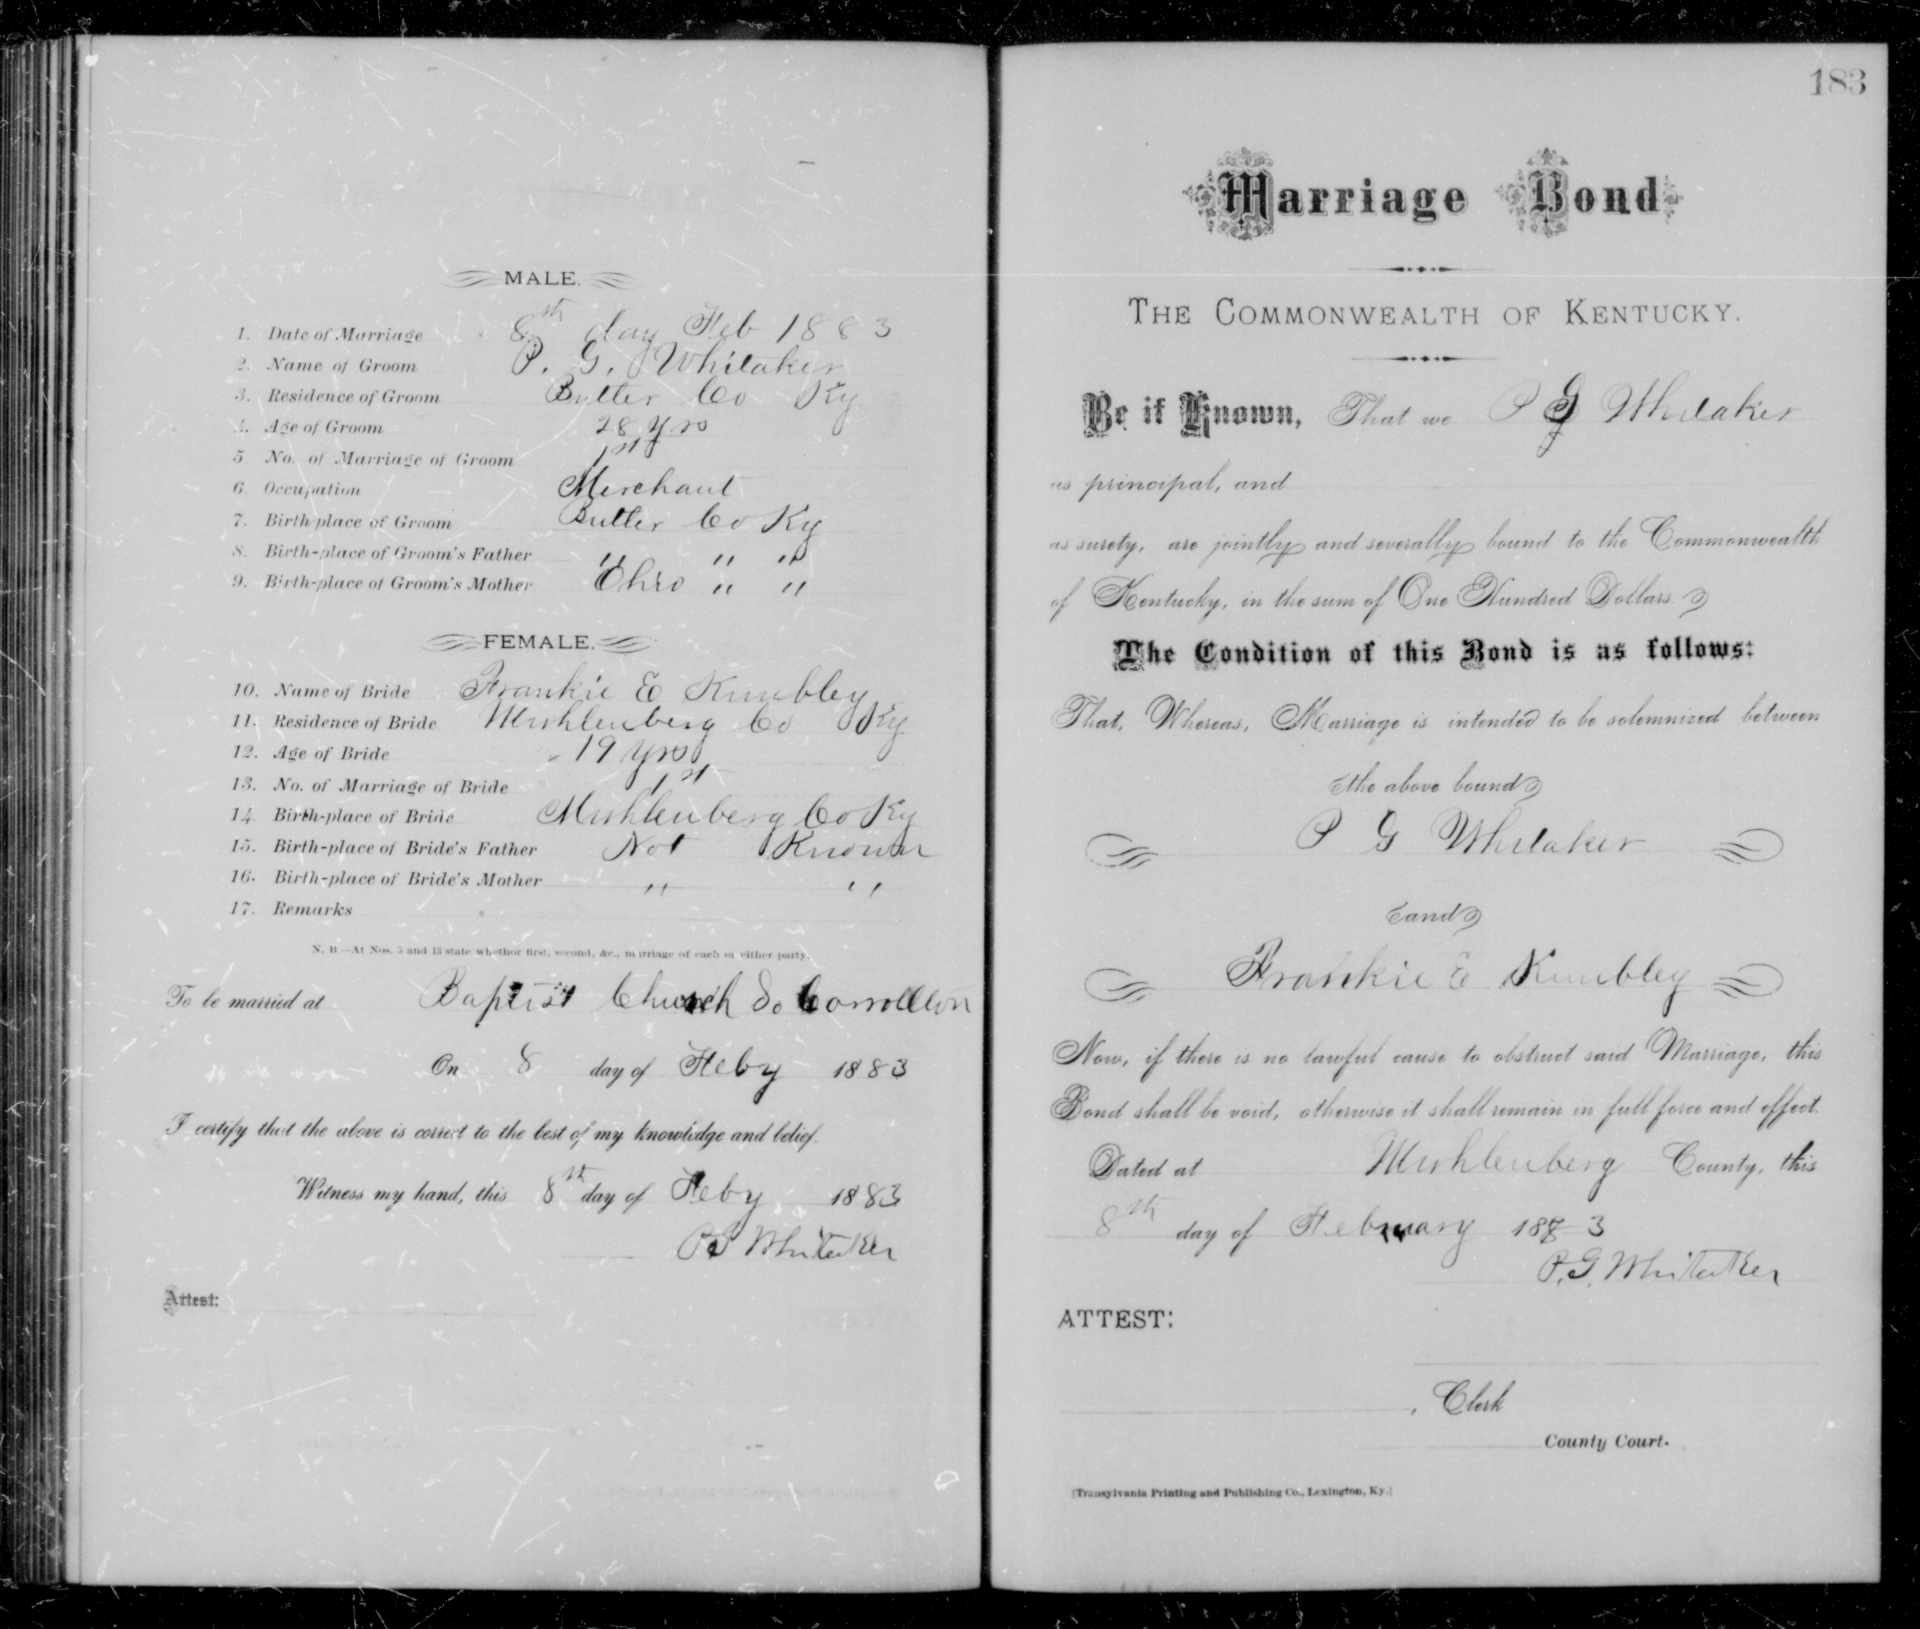 MALE.
1. Date of Marriage 8th day Feb 1883
2. Name of Groom P. G. Whitaker
3. Residence of Groom Butler Co Ky
4. Age of Groom 28 yrs
5. No. of Marriage of Groom 1st
6. Occupation Merchant
7. Birth-place of Groom Butler Co Ky
8. Birth-place of Groom's Father " " "
9. Birth-place of Groom's Mother Ohio " "
FEMALE.
10. Name of Bride Frankie E Kimbley
11. Residence of Bride Muhlenberg Co Ky
12. Age of Bride 19 yrs
13. No. of Marriage of Bride 1st
14. Birth-place of Bride Muhlenberg Co Ky
15. Birth-place of Bride's Father Not Known
16. Birth-place of Bride's Mother " "
17. Remarks
N. B.—At Nos. 5 and 13 state whether first, second, &c., marriage of each or either party.
To be married at Baptist Church So Carrollton
On 8 day of Feby 1883
I certify that the above is correct to the best of my knowledge and belief.
Witness my hand, this 8th day of Feby 1883
P G Whitaker
Attest:
183
Marriage Bond
THE COMMONWEALTH OF KENTUCKY.
Be it Known, That we P G Whitaker
as principal, and
as surety, are jointly and severally bound to the Commonwealth
of Kentucky, in the sum of One Hundred Dollars.
The Condition of this Bond is as follows:
That, Whereas, Marriage is intended to be solemnized between
the above bound
P G Whitaker
and
Frankie E Kimbley
Now, if there is no lawful cause to obstruct said Marriage, this
Bond shall be void, otherwise it shall remain in full force and effect.
Dated at Muhlenberg County, this
8th day of February 1883
P. G. Whitaker
ATTEST:
, Clerk
County Court.
[Transylvania Printing and Publishing Co., Lexington, Ky.]